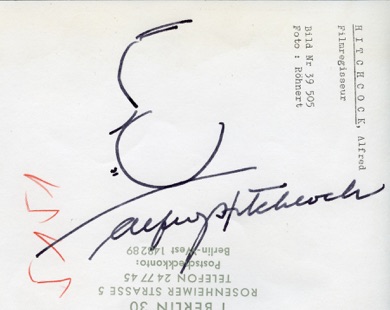 HITCHCOCK, Alfred
Filmregisseur
Bild Nr 39 505
Foto : Röhnert
Alfred Hitchcock
1 BERLIN 30
ROSENHEIMER STRASSE 5
TELEFON 24 77 45
Postscheckkonto:
Berlin-West 149289